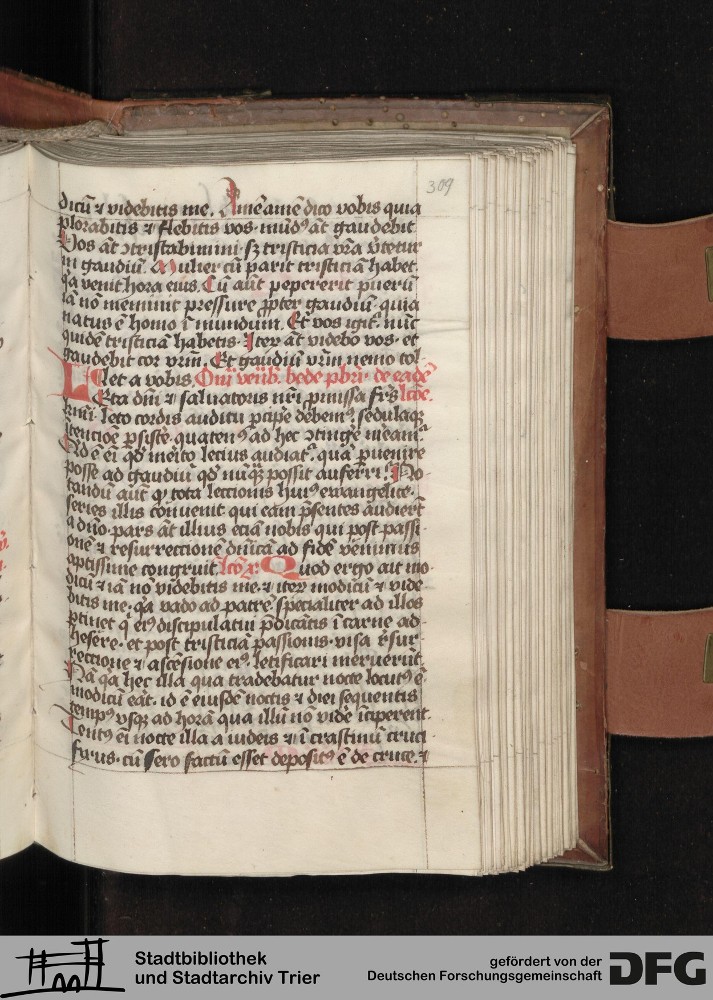 309
dicū ⁊ videbitis me. Amē amē dico vobis quia
plorabitis ⁊ flebitis vos. mūdꝰ āt gaudebit.
Vos āt ꝯtristabimini. sꝫ tristicia vr̄a v̄tetur
in gaudiū. Mulier cū parit tristiciā habet.
q̄a venit hora eius. Cū aūt pepererit puerū
iā nō meminit pressure ꝓpter gaudiū. quia
natus ē homo ī mundum. Et vos igiť. nūc
quidē tristiciā habetis. Iteꝝ āt videbo vos. et
gaudebit cor vr̄m. Et gaudiū vr̄m nemo tol-
let a vobis. Om̄ veūb. bede pb̄ri de eadē
Leta dn̄i ⁊ saluatoris nr̄i ꝓmissa fr̄s lcōe.
k̄mi. leto cordis auditu ꝑcipe debemꝰ. sedulaqꝫ
ītencioē ꝑsistē. quatenꝰ ad hec ꝯtingē meam᷑.
Id ē ei qd̄ meito lecius audiat᷑. qua ꝑuenire
posse ad gaudiū qd̄ nūqꝫ possit auferri. No-
tandū aūt qꝫ tota leccionis huiꝰ ewangelice.
series illis conuenit qui eam p̄sentes audiert̄
a dn̄o. pars āt illius eciā nobis qui post passi-
onē ⁊ resurreccionē dnīcā ad fidē venimus
aptissime congruit. lcō x. Quod ergo ait mo-
dicū ⁊ iā nō videbitis me. ⁊ iteꝝ modicū ⁊ vide-
bitis me. q̄a vado ad patrē. specialiter ad illos
ꝑtinet q̄ eiꝰ discipulatui p̄dicātis ī carne ad-
hesere. et post tristiciā passionis. visa r̄sur-
reccione ⁊ ascēsione eiꝰ. letificari meruerūt.
Nā q̄a hec illa qua tradebatur nocte locutꝰ ē.
modicū eāt. id ē eiusdē noctis ⁊ diei sequentis
tempꝰ vsqꝫ ad horā qua illū nō vidē īciperent.
Tentꝰ ei nocte illa a iudeis ⁊ ī crastinū cruci-
fixus. cū sero factū esset depositꝰ ē de cruce. ⁊
Stadtbibliothek
und Stadtarchiv Trier
gefördert von der
Deutschen Forschungsgemeinschaft
DFG